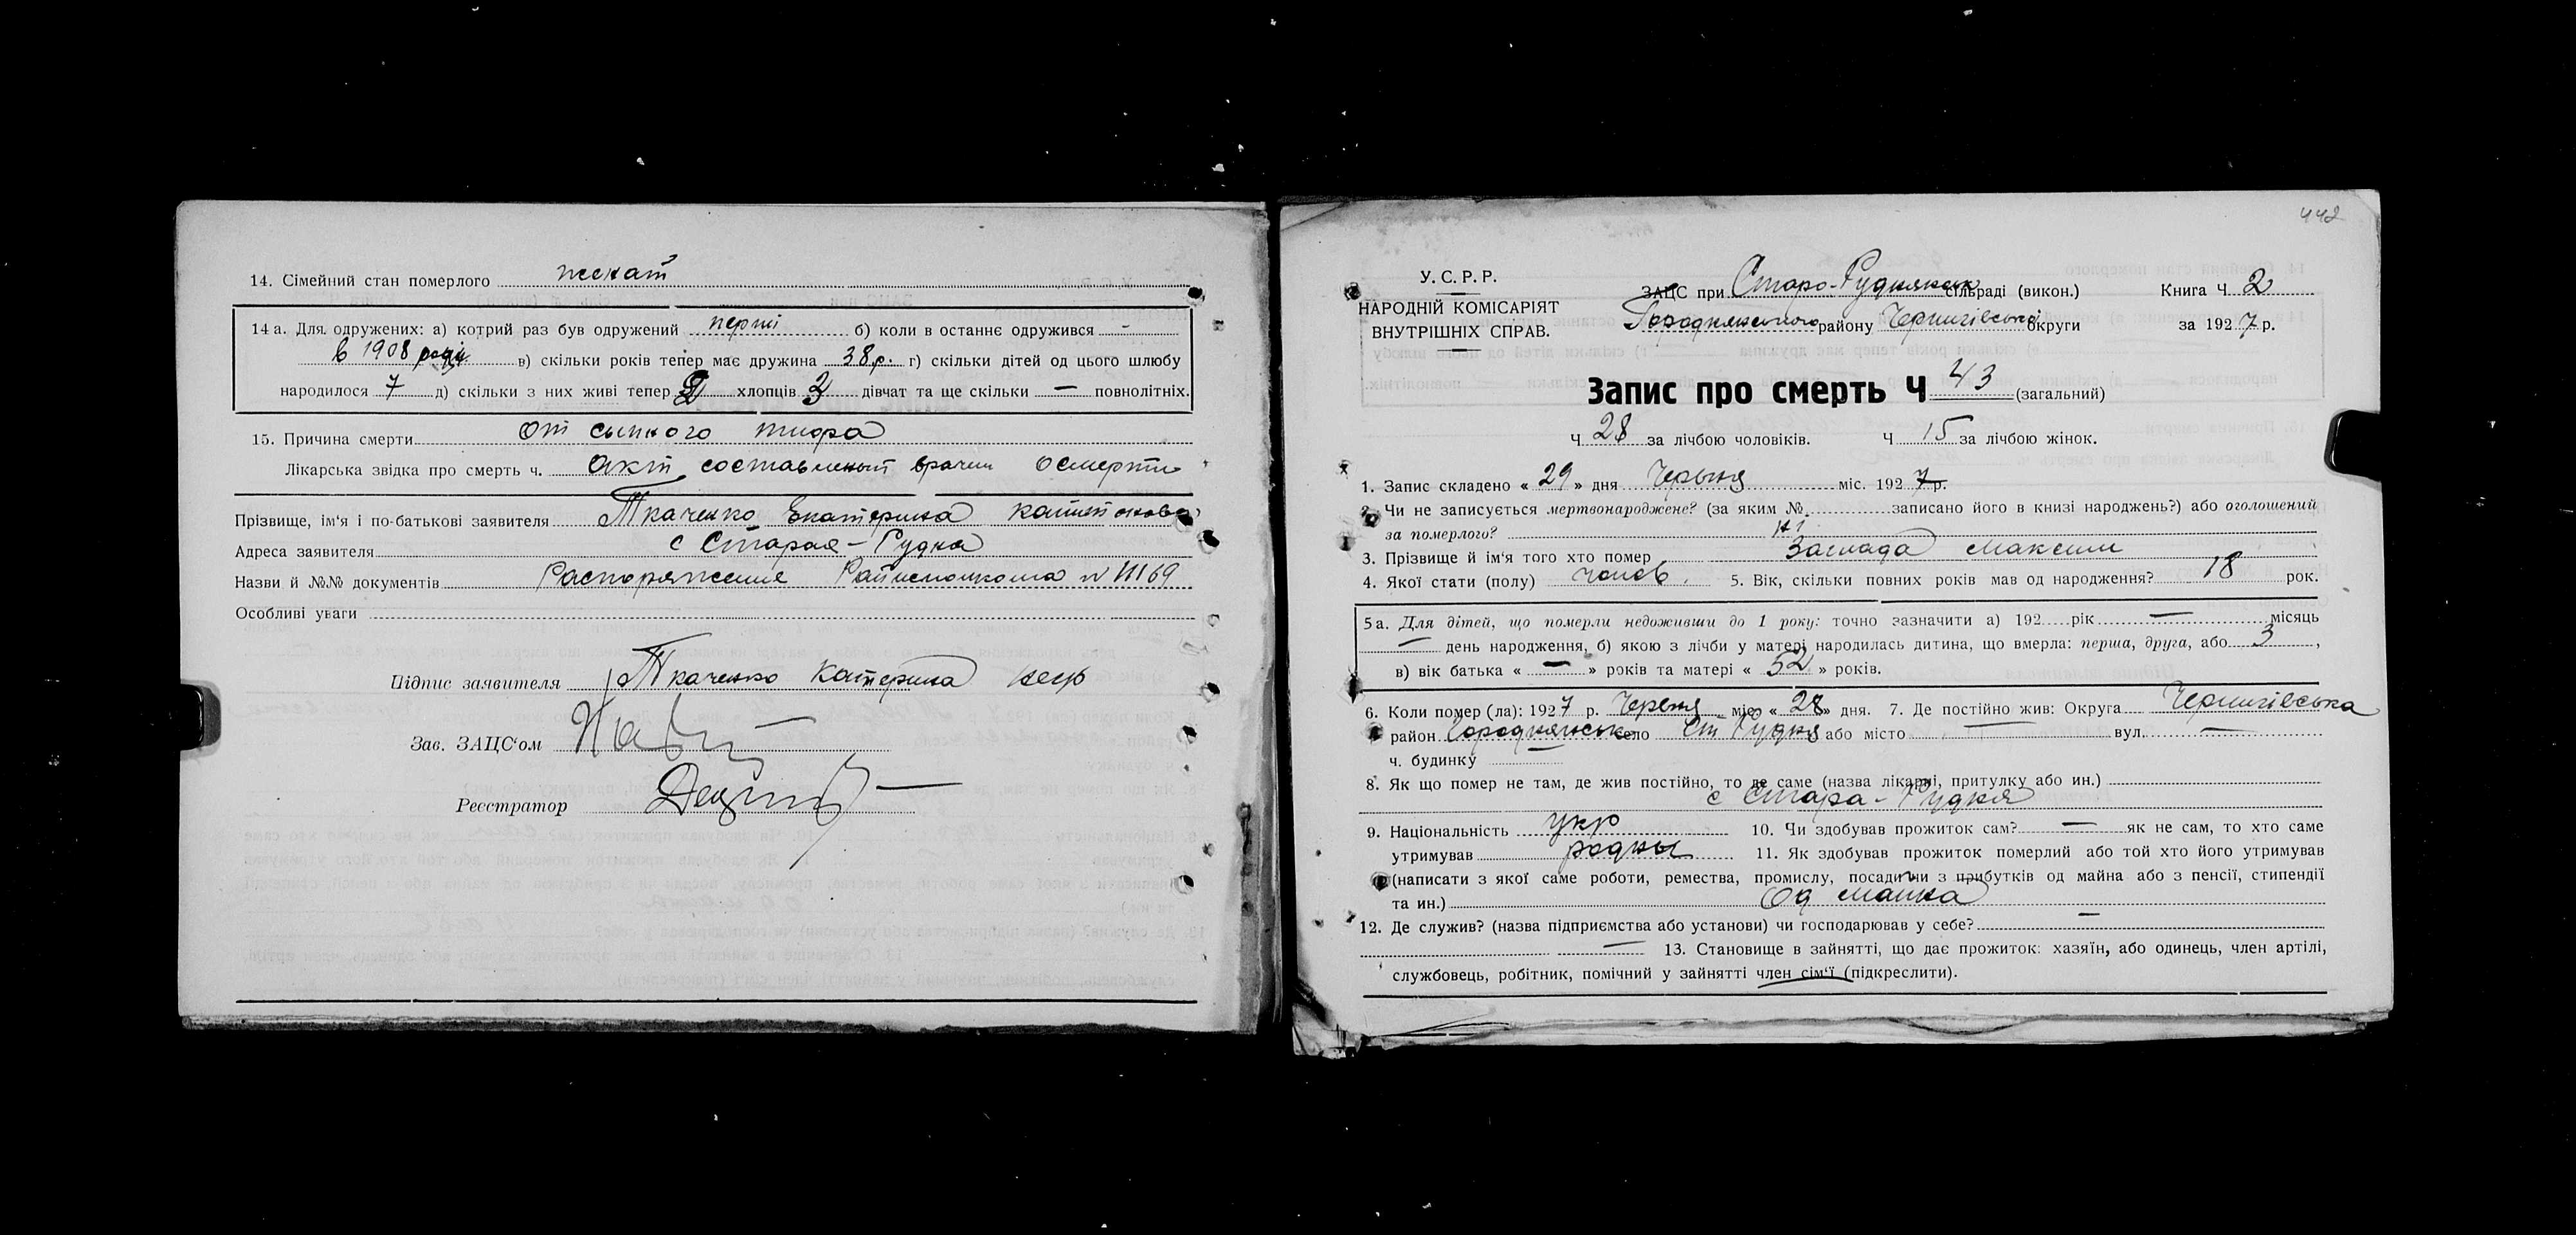 14. Сімейний стан померлого женат
14 а. Для одружених: а) котрий раз був одружений перші б) коли в останнє одружився -
в 1908 році в) скільки років тепер має дружина 38 р. г) скільки дітей од цього шлюбу
народилося 7 д) скільки з них живі тепер 2 хлопців 3 дівчат та ще скільки — повнолітніх.
15. Причина смерти от сыпного тифа
Лікарська звідка про смерть ч. Акт составленый врачем о смерти
Прізвище, ім'я і по-батькові заявителя Ткаченко Екатерина
Адреса заявителя с Старая-Рудня
Назви й №№ документів Распоряжение Райисполкома N
Особливі уваги
Підпис заявителя Ткаченко Катерина
Зав. ЗАЦС'ом
Реєстратор
442
У. С. Р. Р.
НАРОДНІЙ КОМІСАРІЯТ
ВНУТРІШНІХ СПРАВ.
ЗАЦС при Старо-Руднянск сільраді (викон.) Книга Ч 2
Городнянського району Чернигівської округи за 1927 р.
Запис про смерть Ч 43 (загальний)
Ч 28 за лічбою чоловіків. Ч 15 за лічбою жінок.
1. Запис складено « 29 » дня Червня міс. 1927 р.
2. Чи не записується мертвонароджене? (за яким № записано його в книзі народжень?) або оголошений
за померлого? ні
3. Прізвище й ім'я того хто помер Заспада Максим
4. Якої стати (полу) чолов. 5. Вік, скільки повних років мав од народження? 18 рок.
5 а. Для дітей, що померли недоживши до 1 року: точно зазначити а) 192 рік — місяць
— день народження, б) якою з лічби у матері народилась дитина, що вмерла: перша, друга, або 3 ,
в) вік батька « — » років та матері « 52 » років.
6. Коли помер (ла): 1927 р. Червня міс. « 28 » дня. 7. Де постійно жив: Округа Чернигівська
район Городнянськ село Ст Рудня або місто — вул. —
ч. будинку —
8. Як що помер не там, де жив постійно, то де саме (назва лікарні, притулку або ин.)
с Стара-Рудня
9. Національність укр 10. Чи здобував прожиток сам? — як не сам, то хто саме
утримував родны 11. Як здобував прожиток померлий або той хто його утримував
(написати з якої саме роботи, ремества, промислу, посади чи з прибутків од майна або з пенсії, стипендії
та ин.) Од майна
12. Де служив? (назва підприємства або установи) чи господарював у себе? —
— 13. Становище в зайнятті, що дає прожиток: хазяїн, або одинець, член артілі,
службовець, робітник, помічний у зайнятті член сім'ї (підкреслити).